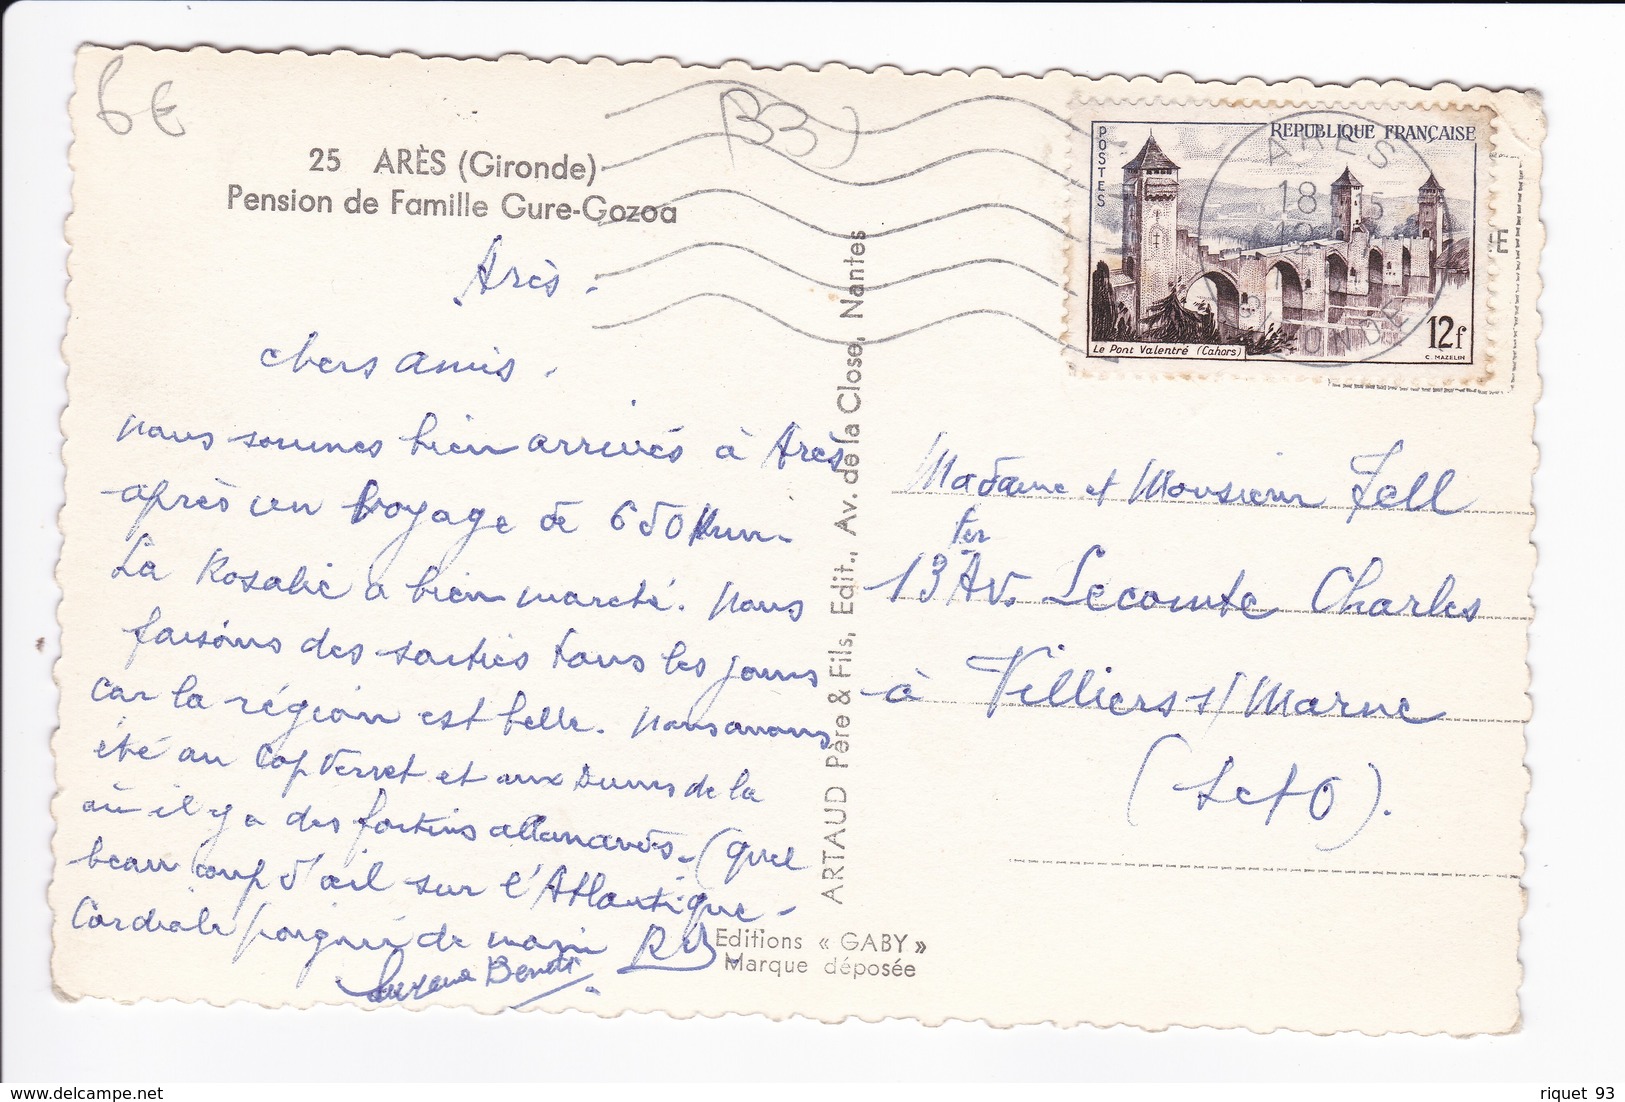 6€
(33)
25 ARÈS (Gironde)
Pension de Famille Gure-Gozoa
Arès.
chers amis.
nous sommes bien arrivés à Arès
après un voyage de 650 Km.
La Rosalie a bien marché. Nous
faisons des sorties tous les jours
car la région est belle. Nous avons
été au Cap Ferret et aux Dunes de la
où il y a des fortins allemands. (quel
beau coup d'œil sur l'Atlantique.
Cordiale poignée de main RB.
Suzane Benoit
ARTAUD Père & Fils, Edit., Av. de la Close, Nantes
Editions « GABY »
Marque déposée
POSTES
REPUBLIQUE FRANÇAISE
Le Pont Valentré (Cahors)
12f
C. MAZELIN
ARES
18 15
12
GIRONDE
E
Madame et Monsieur Fell
ter
13 Av. Lecomte Charles
à Villiers s/ Marne
(S et O).
riquet 93